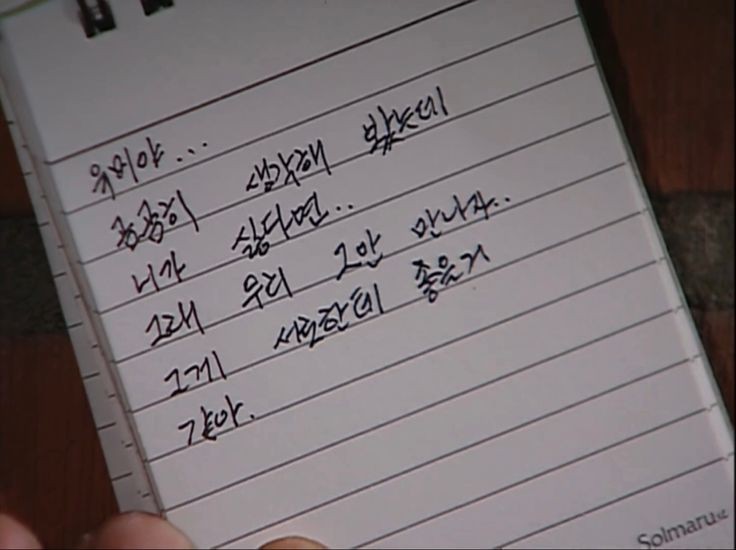 유미야...
곰곰히 생각해 봤는데
니가 싫다면..
그래 우리 그만 만나자..
그게 서로한테 좋은거
같아.
Solmaru